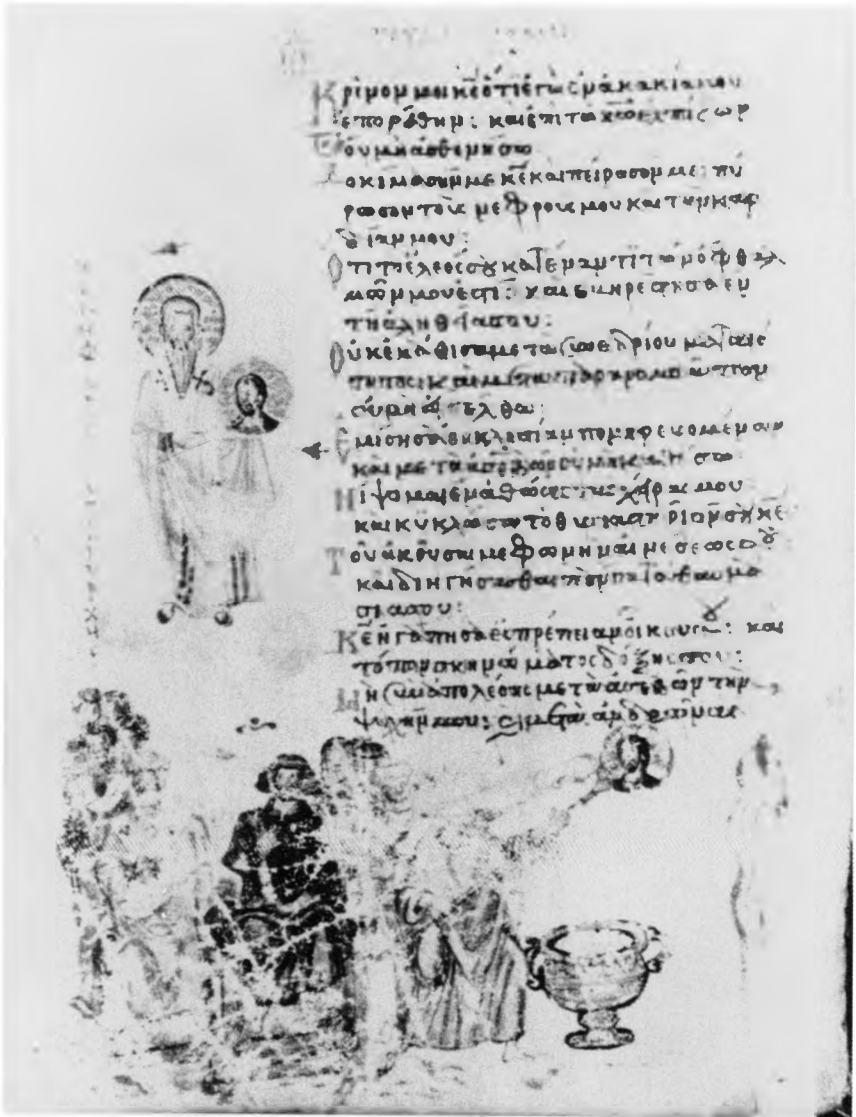 Κρῖνόν μοι κε ὅτι ἐγὼ ἐν ἀκακία μου
ἐπορεύθην: καὶ ἐπὶ τω κω ἐλπίζων
οὐ μὴ ἀσθενήσω
Δοκίμασόν με κε καὶ πείρασόν με: πύ
ρωσον τοὺς νεφρούς μου καὶ τὴν καρ
δίαν μου:
Ὅτι τὸ ἔλεός σου κατέναντι τῶν ὀφθαλ
μῶν μου ἐστί: καὶ εὐηρέστησα ἐν
τῆ ἀληθεία σου:
Οὐκ ἐκάθισα μετὰ συνεδρίου ματαιό
τητος: καὶ μετὰ παρανομούντων
οὐ μὴ εἰσέλθω:
Ἐμίσησα ἐκκλησίαν πονηρευομένων
καὶ μετὰ ἀσεβῶν οὐ μὴ καθίσω
Νίψομαι ἐν ἀθώοις τὰς χεῖρας μου
καὶ κυκλώσω τὸ θυσιαστήριόν σου κε
Τοῦ ἀκοῦσαί με φωνὴν αἰνέσεώς σου
καὶ διηγήσασθαι πάντα τὰ θαυμά
σιά σου:
Κε ἠγάπησα εὐπρέπειαν οἴκου σου: καὶ
τόπον σκηνώματος δόξης σου:
Μὴ συναπολέσης μετὰ ἀσεβῶν τὴν
ψυχήν μου: καὶ μετὰ ἀνδρῶν αἱμά